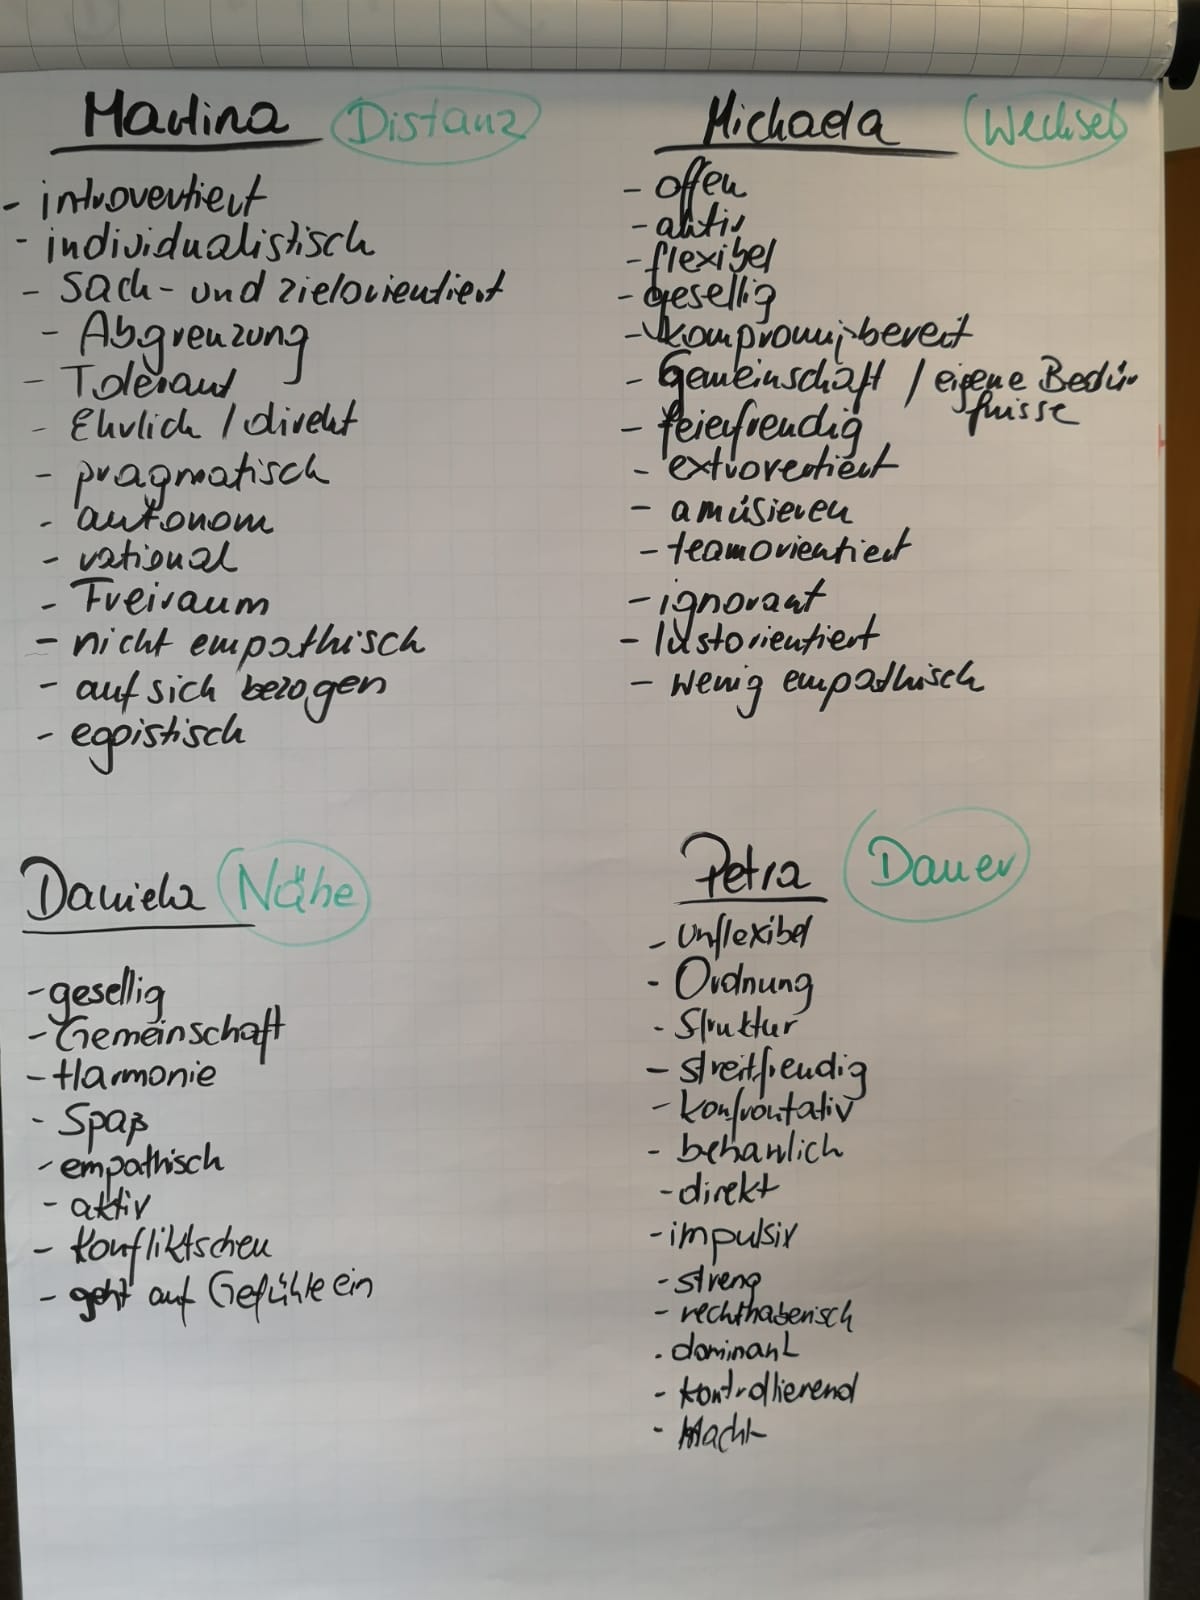 Martina Distanz
- introvertiert
- individualistisch
- Sach- und zielorientiert
- Abgrenzung
- Tolerant
- Ehrlich / direkt
- pragmatisch
- autonom
- rational
- Freiraum
- nicht empathisch
- auf sich bezogen
- egoistisch
Michaela Wechsel
- offen
- aktiv
- flexibel
- gesellig
- kompromißbereit
- Gemeinschaft / eigene Bedür-
fnisse
- feierfreudig
- extrovertiert
- amüsieren
- teamorientiert
- ignorant
- lustorientiert
- wenig empathisch
Daniela Nähe
- gesellig
- Gemeinschaft
- Harmonie
- Spaß
- empathisch
- aktiv
- Konfliktscheu
- geht auf Gefühle ein
Petra Dauer
- Unflexibel
- Ordnung
- Struktur
- streitfreudig
- konfrontativ
- beharrlich
- direkt
- impulsiv
- streng
- rechthaberisch
- dominant
- kontrollierend
- Macht